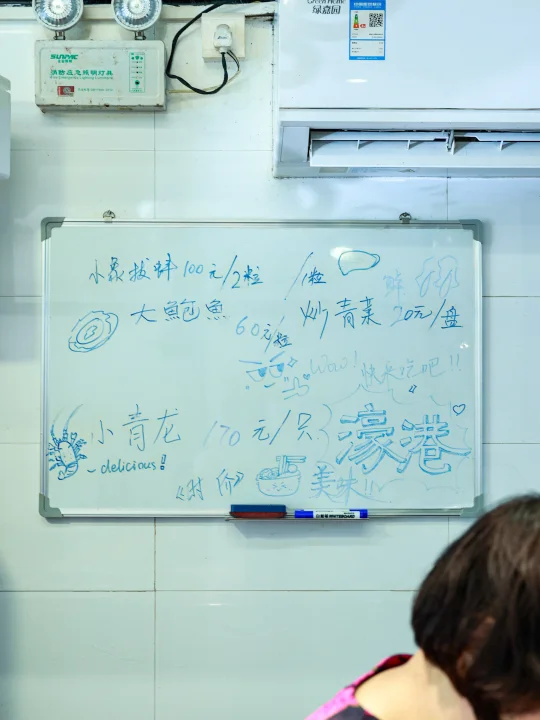 绿嘉园
SUNMC
消防应急照明灯具
小象拔蚌100元/2粒 /1粒
大鲍鱼 60元/粒
炒青菜 20元/盘
鲜
Wow! 快来吃吧!!
小青龙 170元/只
~delicious!
《时价》
濠港
美味!!
WHITEBOARD